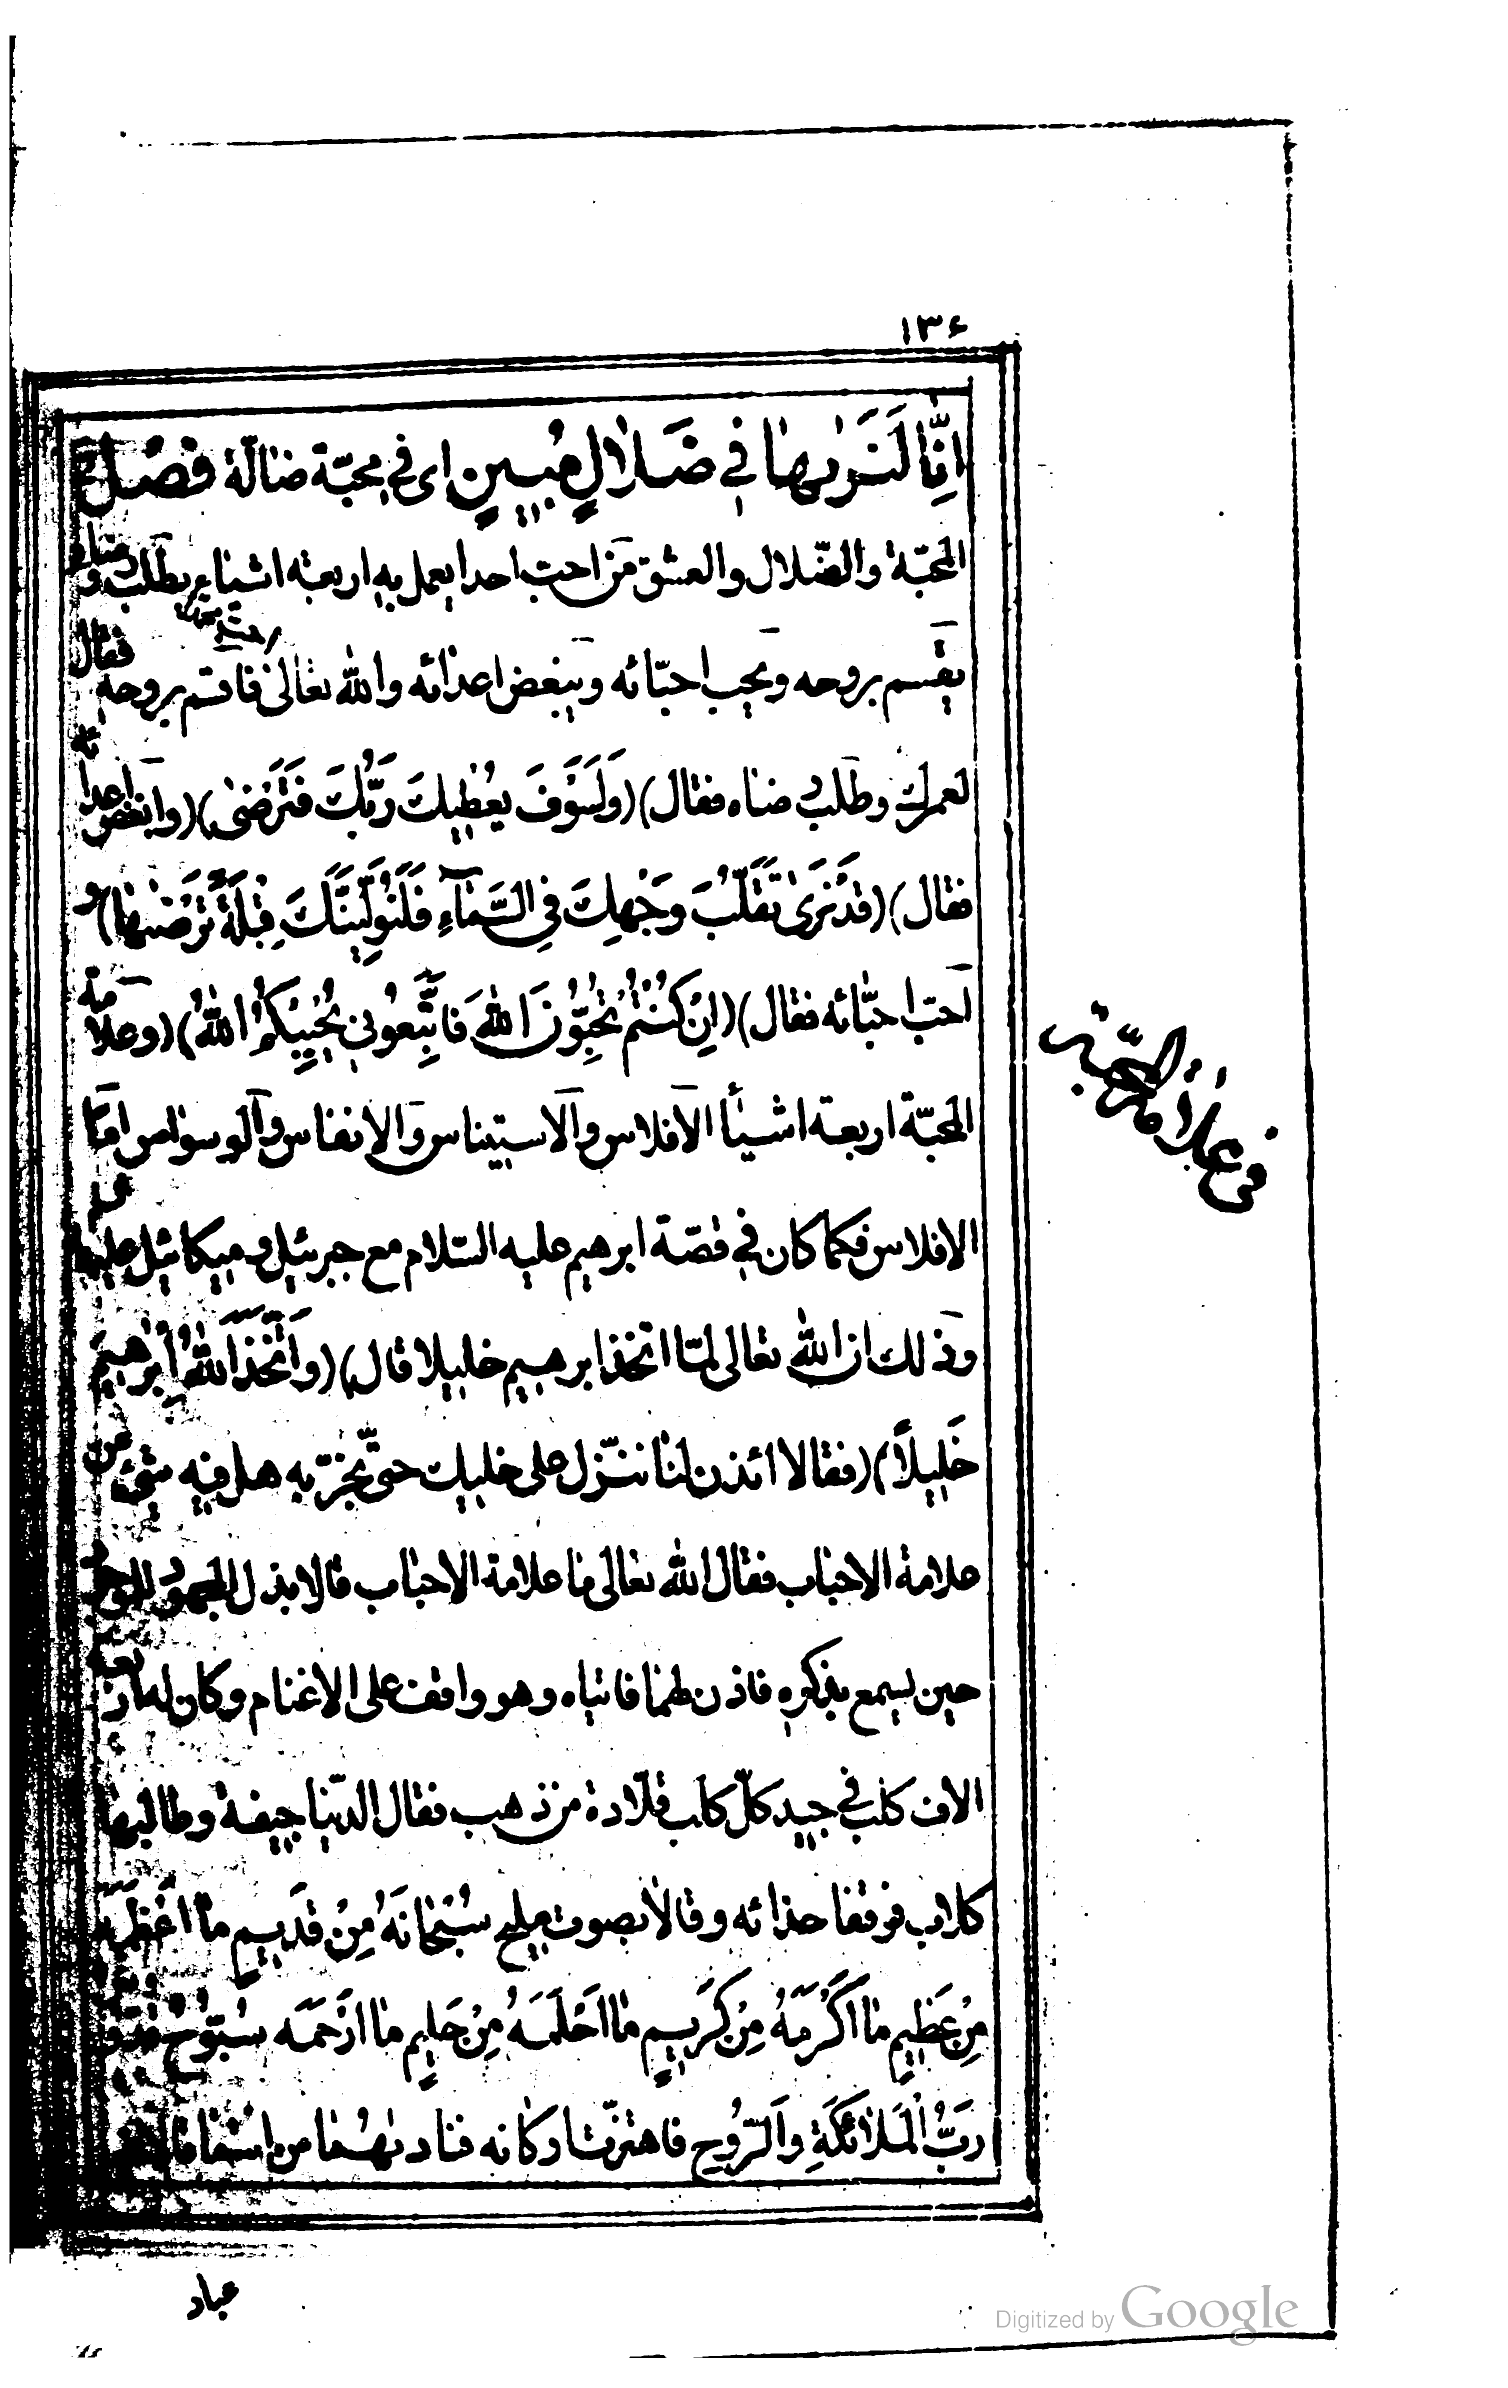 ١٣٤
اِنَّا لَنَرٰىهَا فِي ضَلَالٍ مُبِينٍ اى فى محبّة ضالّة فصل فى
المحبّة والضّلال والعشق من احبّ احدا يعمل به اربعة اشياء يطلب رضاه و
يقسم بروحه ويحب احبّائه ويبغض اعدائه والله تعالى فاقسم بروحه فقال
لعمرك وطلب رضاه فقال) (وَلَسَوْفَ يُعْطِيكَ رَبُّكَ فَتَرْضٰى) (وابغض اعدائه
فقال) (قَدْ نَرٰى تَقَلُّبَ وَجْهِكَ فِي السَّمَآءِ فَلَنُوَلِّيَنَّكَ قِبْلَةً تَرْضٰىهَا) و
احبّ احبّائه فقال) (اِنْ كُنْتُمْ تُحِبُّونَ اللّٰهَ فَاتَّبِعُونِي يُحْبِبْكُمُ اللّٰهُ) (وعلامة
المحبّة اربعة اشيأ الافلاس والاستيناس والانفاس والوسواس امّا
الافلاس فكما كان فى قصّة ابرهيم عليه السّلام مع جبرئيل وميكائيل عليهما
وذلك ان الله تعالى لمّا اتخذ ابرهيم خليلا قال) (وَاتَّخَذَ اللّٰهُ اِبْرٰهِيمَ
خَلِيلًا) (فقالا ائذن لنا ننزل على خليلك حتّى نجرّبه هل فيه شئ من
علامة الاحباب فقال الله تعالى ما علامة الاحباب قالا بذل المجهود
حين يسمع بذكره فاذن لهما فاتياه وهو واقف على الاغنام وكان له اربعة
الاف كلب فى جيد كلّ كلب قلّادة من ذهب فقال الدّنيا جيفة وطالبها
كلاب فوقفا حذائه وقالا بصوت مليح سُبْحَانَهُ مِنْ قَدِيمٍ مَا اَعْظَمَهُ
مِنْ عَظِيمٍ مَا اَكْرَمَهُ مِنْ كَرِيمٍ مَا اَحْلَمَهُ مِنْ حَلِيمٍ مَا اَرْحَمَه سُبُّوحٌ قُدُّوسٌ
رَبُّ الْمَلَائِكَةِ وَالرُّوحِ فاهتزّت اركانه فناديهُما من انتما
عباد
فى علامة المحبّة
Digitized by Google